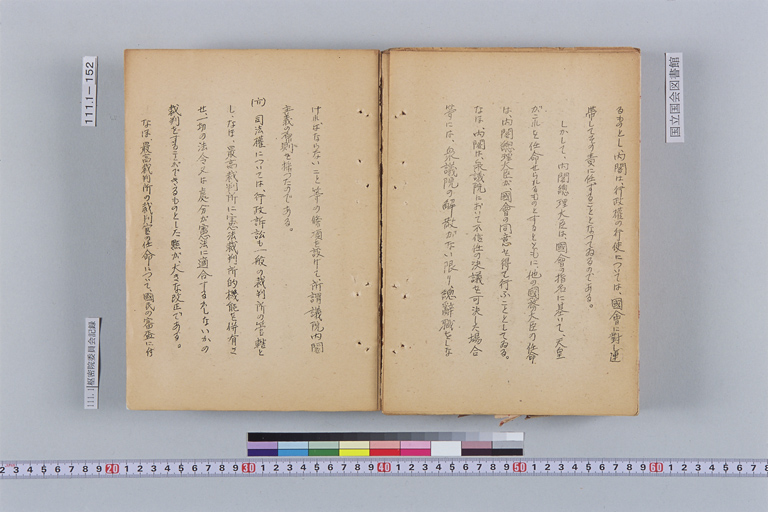 るものとし、内閣は行政權の行使については、國會に對し連
帶してその責に任ずることとなつてゐるのである。
しかして、内閣總理大臣は、國會の指名に基いて、天皇
がこれを任命せられるものとするとともに、他の國務大臣の任命
は内閣總理大臣が國會の同意を得て行ふこととしてゐる。
なほ、内閣は、衆議院において不信任の決議を可決した場合
等には、衆議院の解散がない限り、總辭職をしな
ければならないこと等の條項を設けて、所謂議院内閣
主義の原則を採つたのである。
司法權については、行政訴訟も一般の裁判所の管轄と
し、なほ、最高裁判所に憲法裁判所的機能を併有さ
せ、一切の法令又は處分が憲法に適合するかしないかの
裁判をすることができるものとした點が大きな改正である。
なほ、最高裁判所の裁判官の任命について、國民の審査に付
111.1-152
111.1 枢密院委員会記録
国立国会図書館
2 3 4 5 6 7 8 9 20 1 2 3 4 5 6 7 8 9 30 1 2 3 4 5 6 7 8 9 40 1 2 3 4 5 6 7 8 9 50 1 2 3 4 5 6 7 8 9 60 1 2 3 4 5 6 7 8